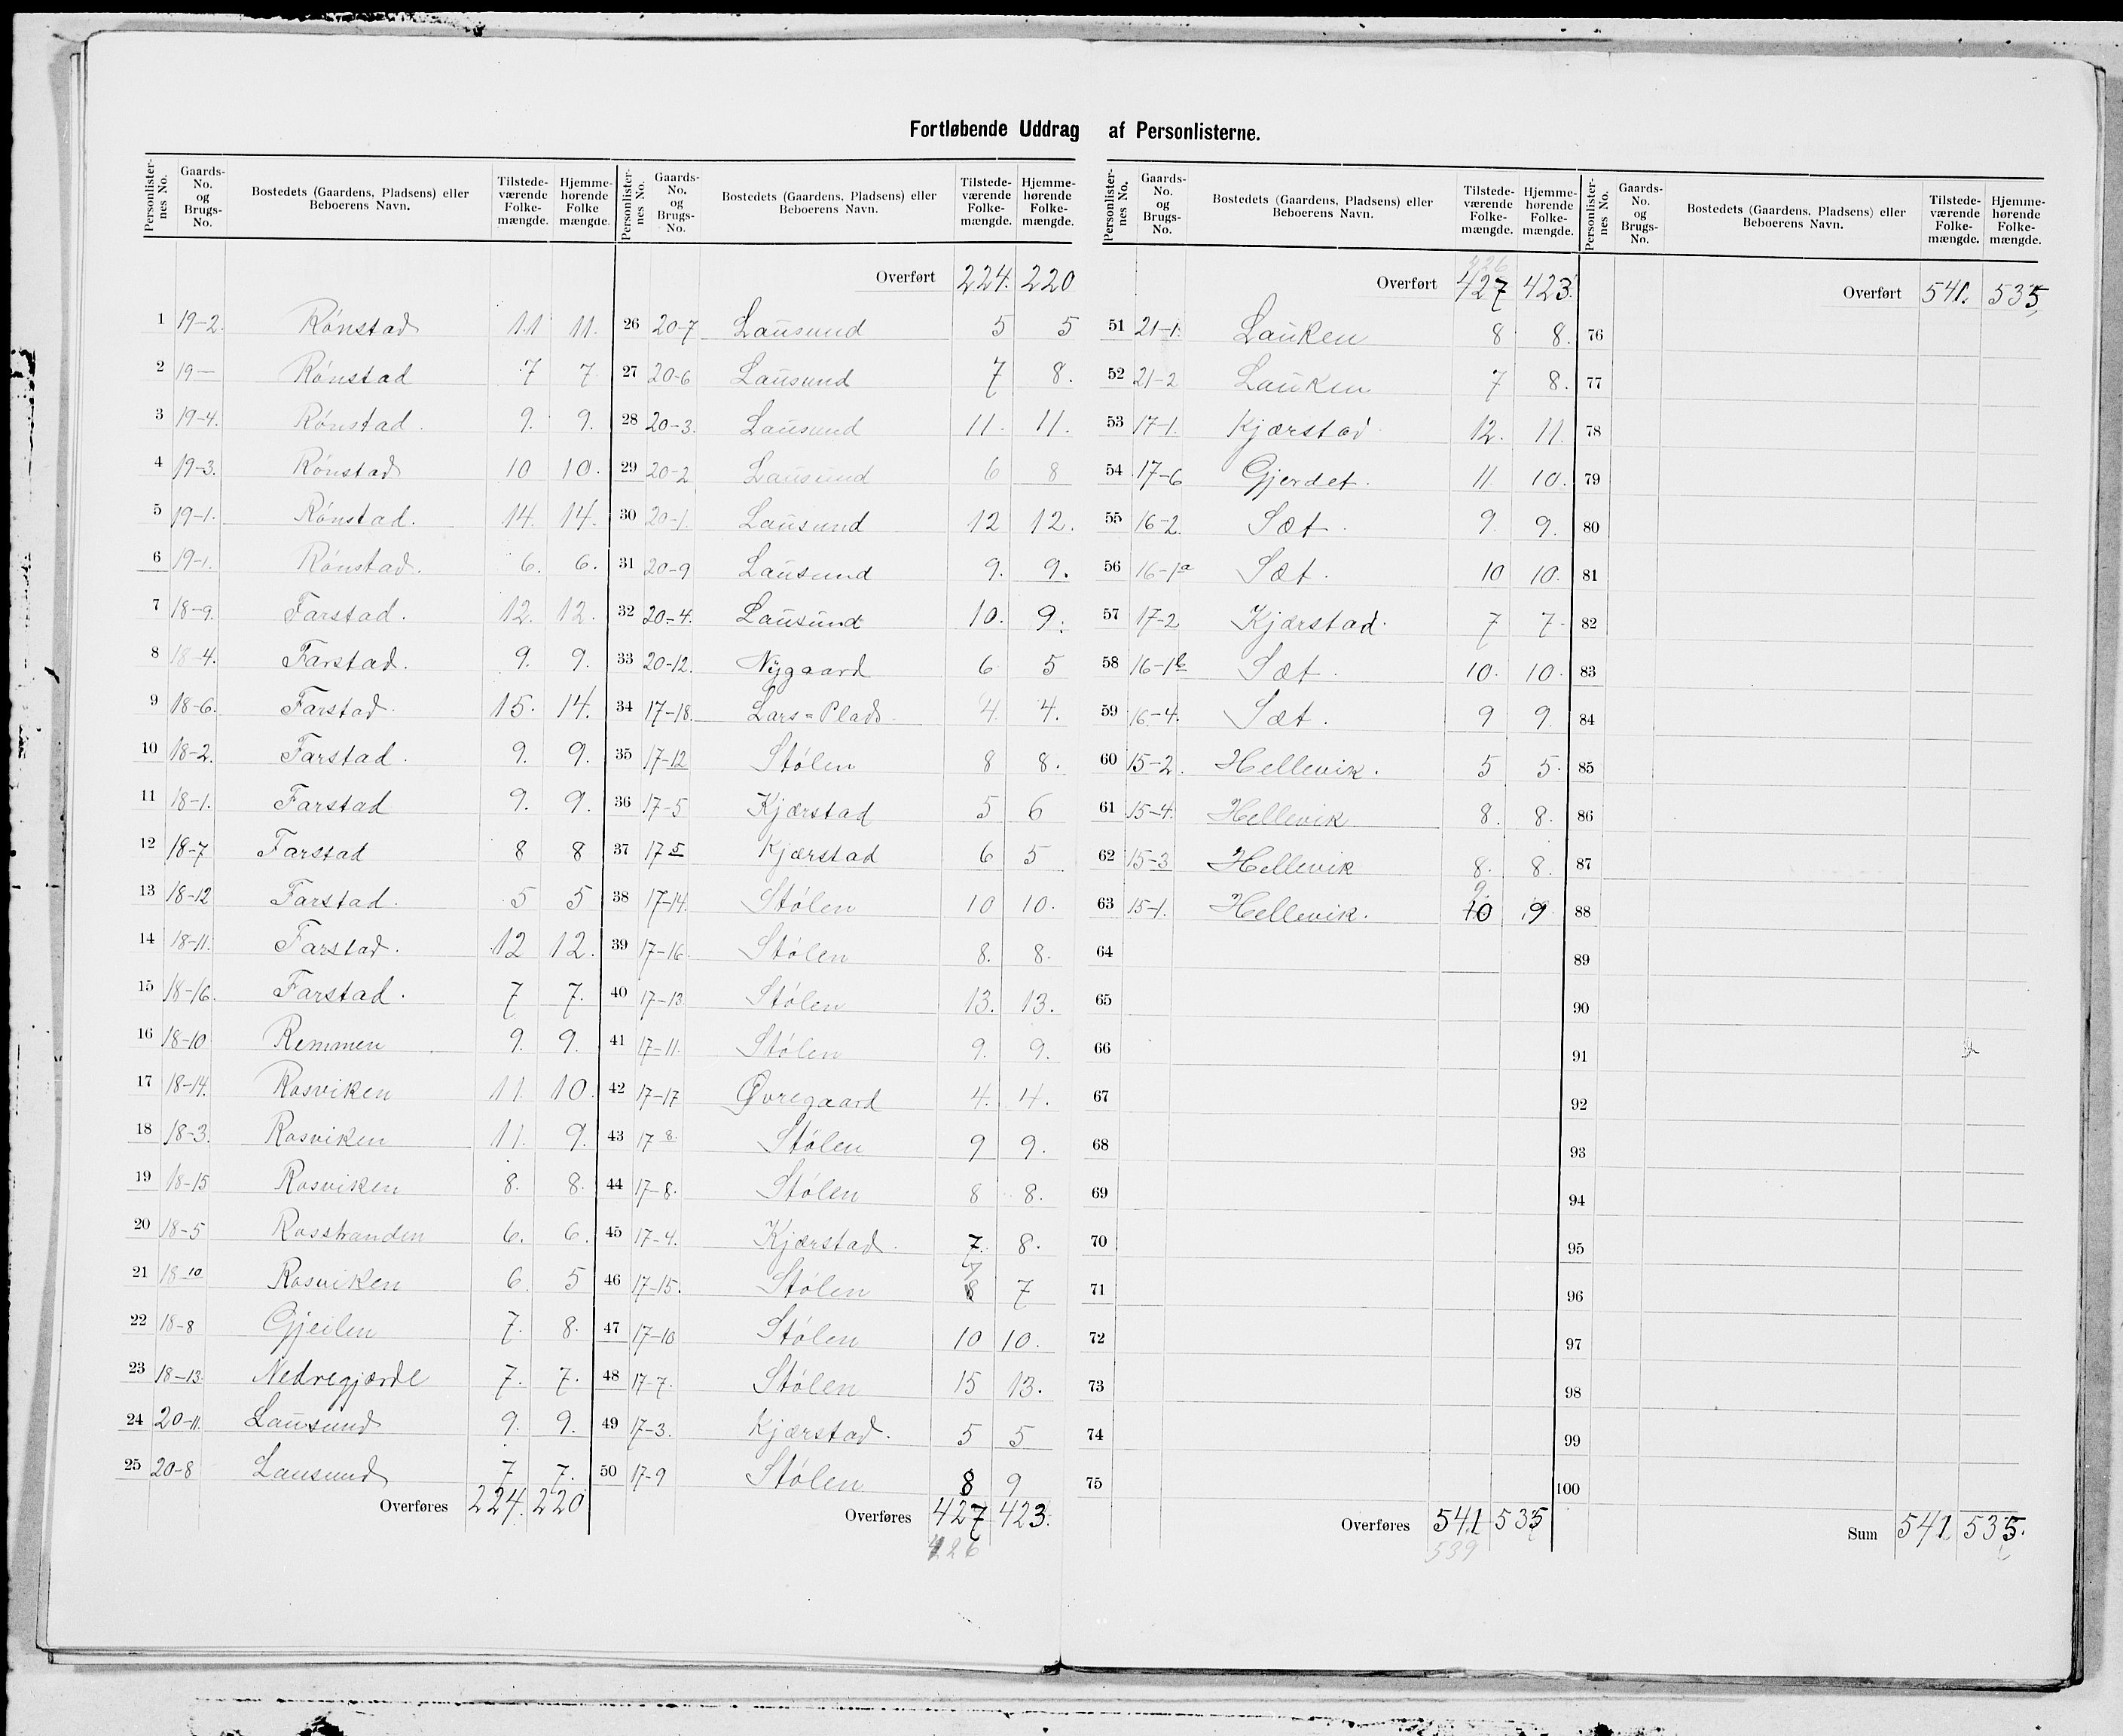 Fortløbende Uddrag af Personlisterne.
Personlister-nes No. Gaards-No. og Brugs-No. Bostedets (Gaardens, Pladsens) eller Beboerens Navn. Tilstede-værende Folke-mængde. Hjemme-hørende Folke mængde.
1 19-2. Rönstad 11 11.
2 19— Rönstad 7 7
3 19-4. Rönstad. 9. 9.
4 19-3. Rönstad 10 10.
5 19-1. Rönstad. 14. 14.
6 19-1. Rönstad. 6. 6.
7 18-9. Farstad. 12. 12.
8 18-4. Farstad. 9. 9.
9 18-6. Farstad. 15. 14.
10 18-2. Farstad. 9. 9.
11 18-1. Farstad 9. 9.
12 18-7 Farstad 8 8
13 18-12 Farstad. 5 5
14 18-11. Farstad. 12 12.
15 18-16. Farstad. 7 7.
16 18-10 Remmen 9. 9.
17 18-14. Rasviken 11. 10.
18 18-3. Rasviken 11. 9.
19 18-15 Rasviken 8. 8.
20 18-5 Rasstranden 6. 6.
21 18-10 Rasviken 6. 5
22 18-8 Gjeilen 7. 8.
23 18-13. Nedregjærde 7. 7.
24 20-11. Lausund 9. 9.
25 20-8 Lausund 7 7.
Overføres 224. 220
Personlister-nes No. Gaards-No. og Brugs-No. Bostedets (Gaardens, Pladsens) eller Beboerens Navn. Tilstede-værende Folke-mængde. Hjemme-hørende Folke-mængde.
Overført 224. 220
26 20-7 Lausund 5 5
27 20-6 Lausund 7 8.
28 20-3. Lausund 11. 11.
29 20-2 Lausund 6 8
30 20-1. Lausund 12 12.
31 20-9 Lausund 9. 9.
32 20-4. Lausund 10. 9.
33 20-12. Nygaard 6 5
34 17-18. Lars=Plads. 4. 4.
35 17-12 Stölen 8 8.
36 17-5 Kjærstad 5 6
37 17 5 Kjærstad 6 5
38 17-14. Stölen 10 10.
39 17-16. Stölen 8. 8.
40 17-13 Stölen 13. 13.
41 17-11. Stölen 9. 9.
42 17-17 Øvregaard 4. 4.
43 17 8. Stölen 9 9.
44 17-8. Stölen 8 8.
45 17-4. Kjærstad. 7. 8.
46 17-15. Stölen 7 8 7
47 17-10 Stölen 10 10.
48 17-7. Stölen 15 13.
49 17-3. Kjærstad. 5 5
50 17-9 Stölen 8 9
Overføres 427 423.
426
Personlister-nes No. Gaards-No. og Brugs-No. Bostedets (Gaardens, Pladsens) eller Beboerens Navn. Tilstede-værende Folke-mængde. Hjemme-hørende Folke-mængde.
426
Overført 427 423.
51 21-1. Lauken 8 8.
52 21-2 Lauken 7 8.
53 17-1. Kjærstad 12. 11.
54 17-6 Gjerdet. 11 10.
55 16-2. Sæt. 9. 9.
56 16-1a Sæt. 10 10.
57 17-2 Kjærstad. 7 7.
58 16-1b Sæt. 10. 10.
59 16-4. Sæt. 9 9.
60 15-2. Hellevik. 5 5.
61 15-4. Hellevik 8. 8.
62 15-3 Hellevik 8. 8.
63 15-1. Hellevik. 9. 10 9
64
65
66
67
68
69
70
71
72
73
74
75
Overføres 541 535
539
Personlister-nes No. Gaards-No. og Brugs-No. Bostedets (Gaardens, Pladsens) eller Beboerens Navn. Tilstede-værende Folke-mængde. Hjemme-hørende Folke-mængde.
Overført 541. 535
76
77
78
79
80
81
82
83
84
85
86
87
88
89
90
91
92
93
94
95
96
97
98
99
100
Sum 541 535.